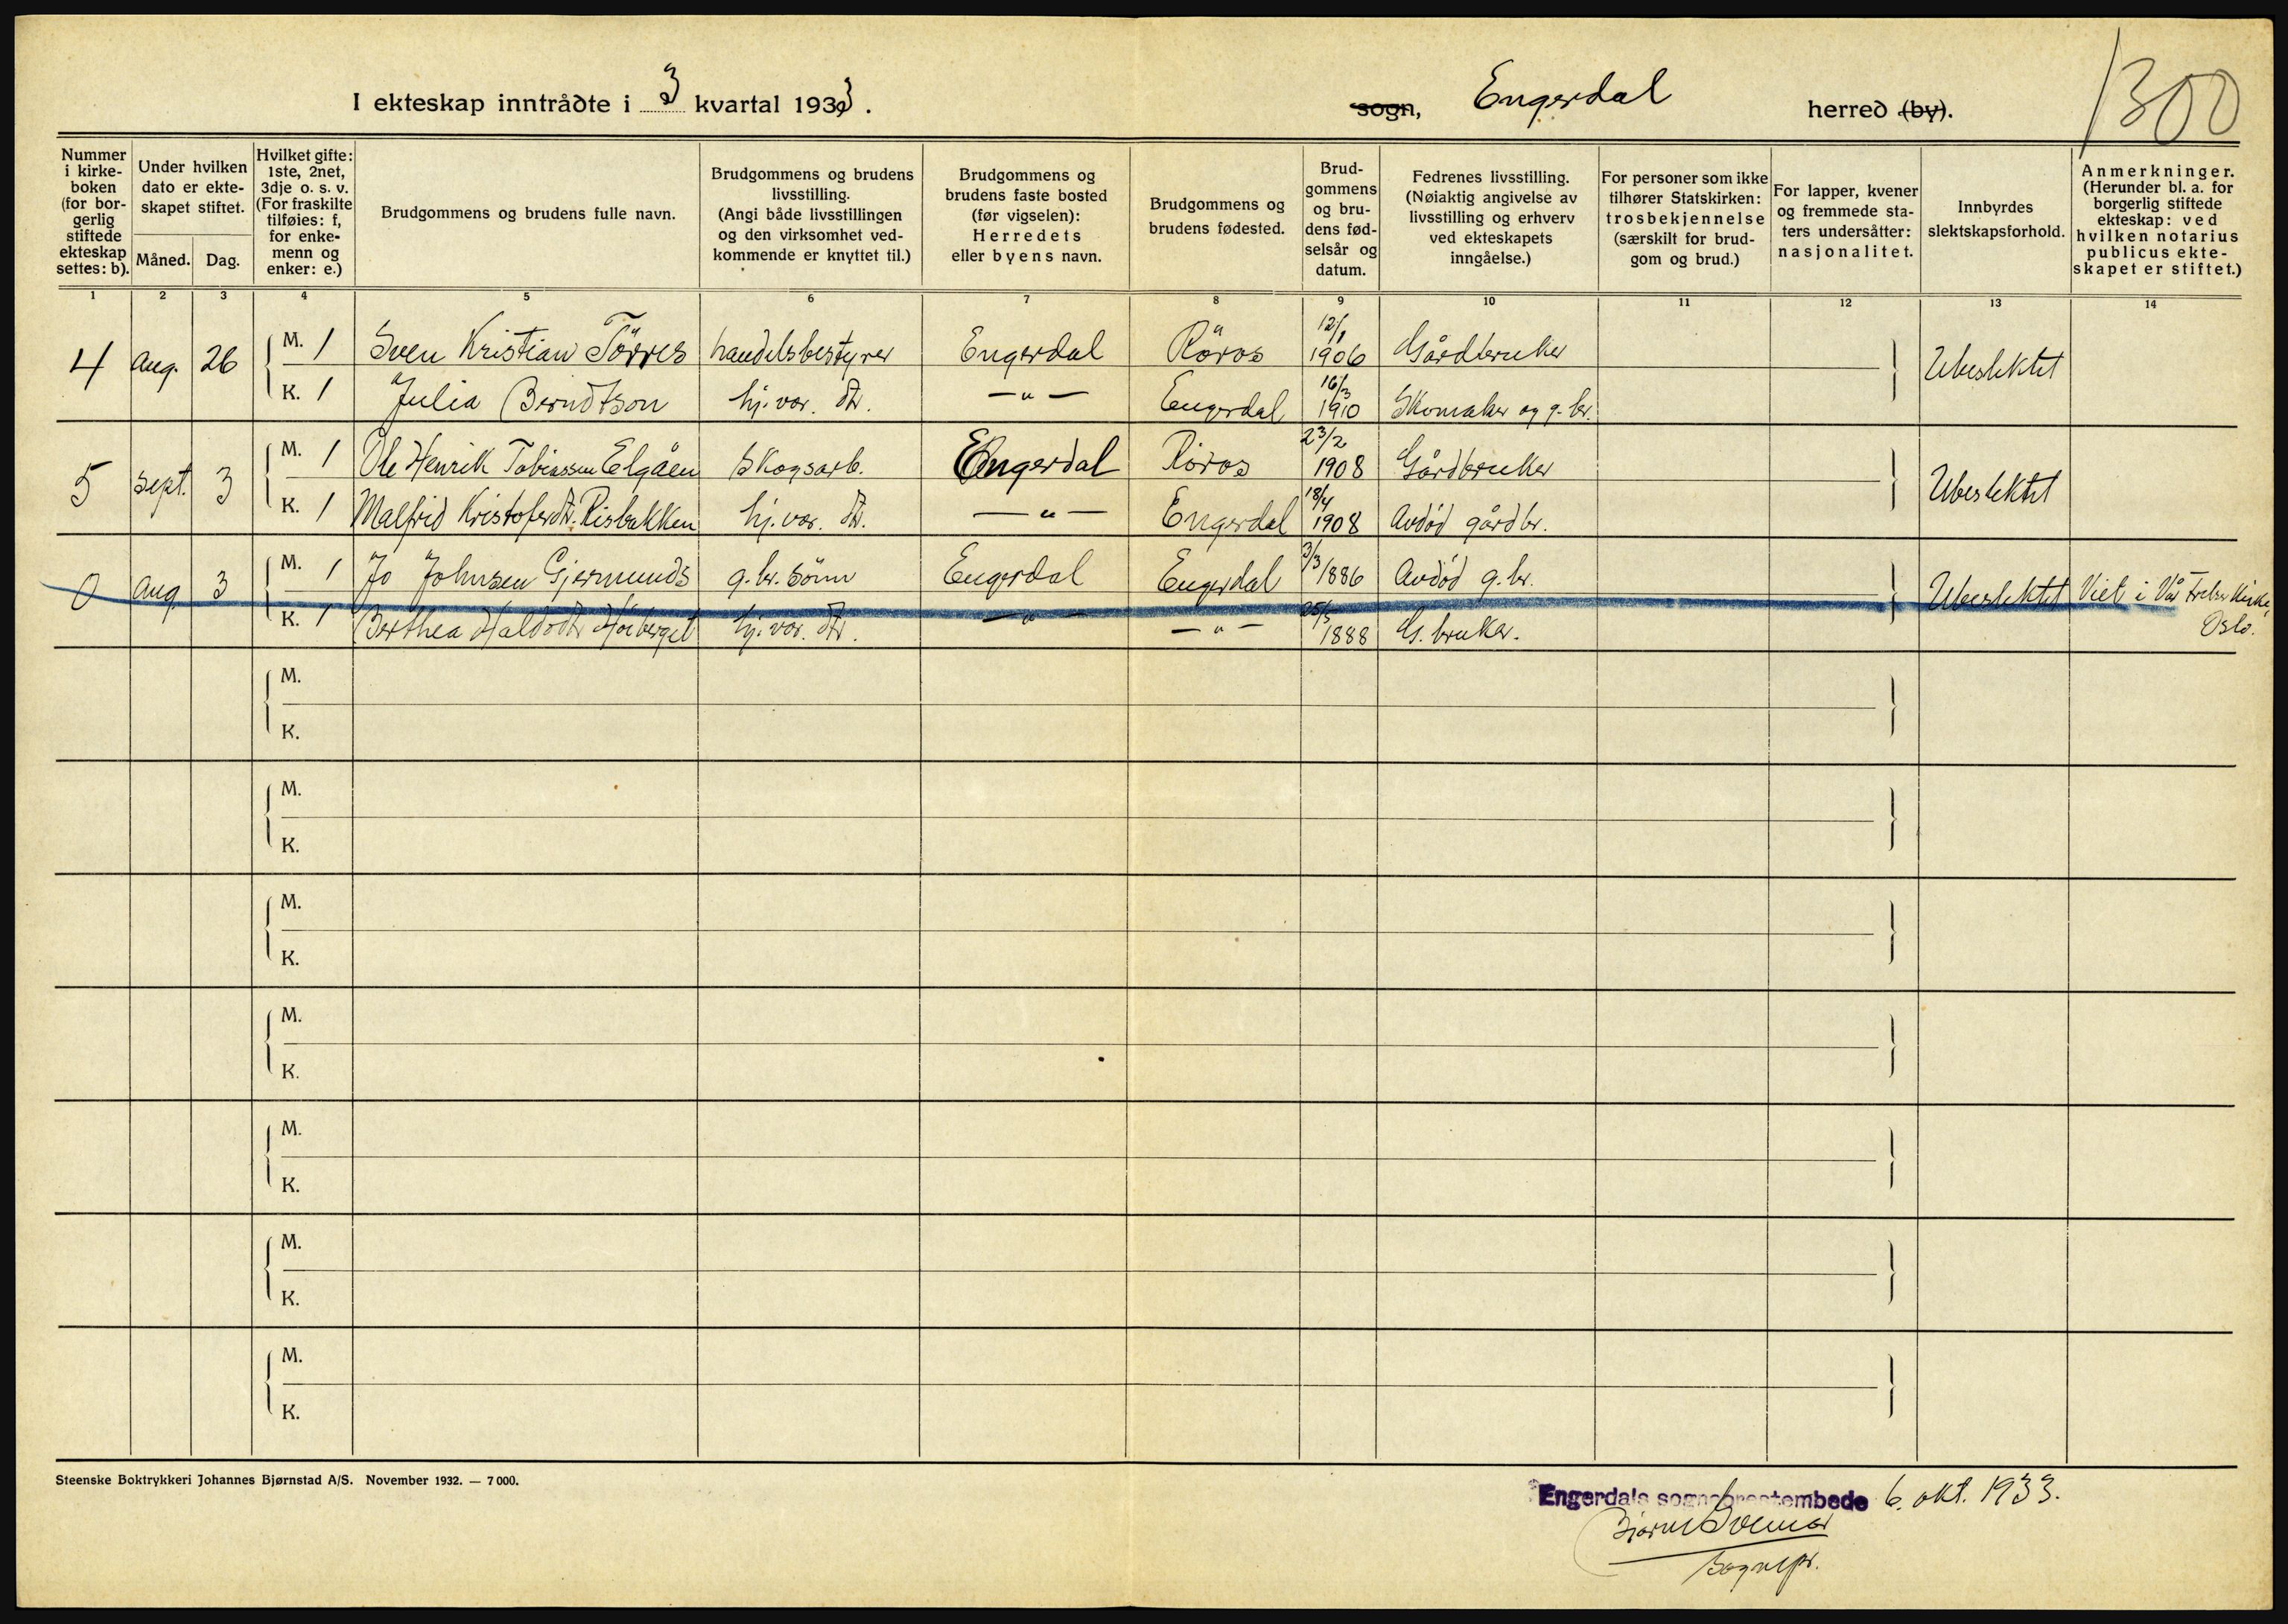 I ekteskap inntrådte i 3 kvartal 1933.
sogn, Engerdal herred (by).
1300
Nummer i kirkeboken (for borgerlig stiftede ekteskap settes: b).
Under hvilken dato er ekteskapet stiftet.
Måned. Dag.
Hvilket gifte: 1ste, 2net, 3dje o. s. v. (For fraskilte tilføies: f, for enkemenn og enker: e.)
Brudgommens og brudens fulle navn.
Brudgommens og brudens livsstilling. (Angi både livsstillingen og den virksomhet vedkommende er knyttet til.)
Brudgommens og brudens faste bosted (før vigselen): Herredets eller byens navn.
Brudgommens og brudens fødested.
Brudgommens og brudens fødselsår og datum.
Fedrenes livsstilling. (Nøiaktig angivelse av livsstilling og erhverv ved ekteskapets inngåelse.)
For personer som ikke tilhører Statskirken: trosbekjennelse (særskilt for brudgom og brud.)
For lapper, kvener og fremmede staters undersåtter: nasjonalitet.
Innbyrdes slektskapsforhold.
Anmerkninger. (Herunder bl. a. for borgerlig stiftede ekteskap: ved hvilken notarius publicus ekteskapet er stiftet.)
1 2 3 4 5 6 7 8 9 10 11 12 13 14
4 Aug. 26 M. 1 Sven Kristian Törres handelsbestyrer Engerdal Röros 12/1 1906 Gårdbruker Ubeslektet
K. 1 Julia Berndtson hj. vær. dtr. — " — Engerdal 16/3 1910 Skomaker og g. br.
5 Sept. 3 M. 1 Ole Henrik Tobiassen Elgåen Skogsarb. Engerdal Röros 23/2 1908 Gårdbruker Ubeslektet
K. 1 Malfrid Kristoferdtr. Risbakken hj. vær. dtr. — " — Engerdal 18/4 1908 Avdød gårdbr.
0 Aug. 3 M. 1 Jo Johnsen Gjermunds g. br. sönn Engerdal Engerdal 3/3 1886 Avdød g. br. Ubeslektet Viet i Vår Frelsers Kirke, Oslo.
K. 1 Berthea Haldodtr. Hőberget hj. vær. dtr. — " — — " — 25/5 1888 G. bruker.
M.
K.
M.
K.
M.
K.
M.
K.
M.
K.
M.
K.
M.
K.
Steenske Boktrykkeri Johannes Bjørnstad A/S. November 1932. — 7 000.
Engerdals sogneprestembede 6. okt. 1933.
Sognepr.